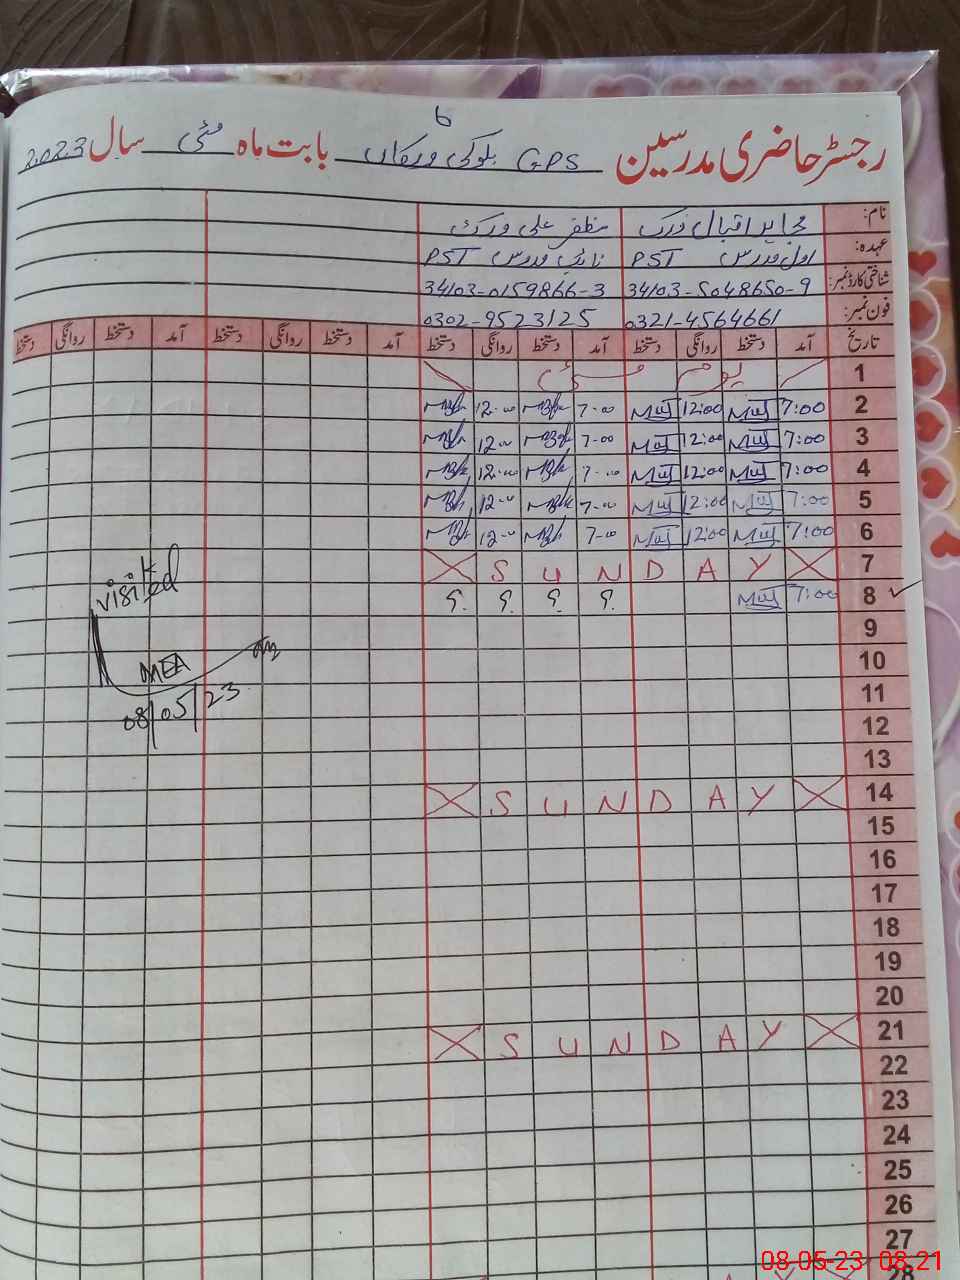 رجسٹر حاضری مدرسین GPS بلوکی ورکاں بابت ماہ مئی سال 2023
نام: مجاہد اقبال ورک مظفر علی ورک
عہدہ: اول مدرس PST نائب مدرس PST
شناختی کارڈ نمبر: 34103-5048650-9 34103-0159866-3
فون نمبر: 0321-4564661 0302-9523125
تاریخ آمد دستخط روانگی دستخط آمد دستخط روانگی دستخط آمد دستخط روانگی دستخط آمد دستخط روانگی دستخط
1 یوم
2 7:00 12:00 7-00 12-00
3 7:00 12:00 7-00 12-00
4 7:00 12:00 7-00 12-00
5 7:00 12:00 7-00 12-00
6 7:00 12:00 7-00 12-00
7 SUNDAY
8 7:00 ؟ ؟ ؟ ؟
9
10
11
12
13
14 SUNDAY
15
16
17
18
19
20
21 SUNDAY
22
23
24
25
26
27
28
visited
MEA
08/05/23
08-05-23 08:21